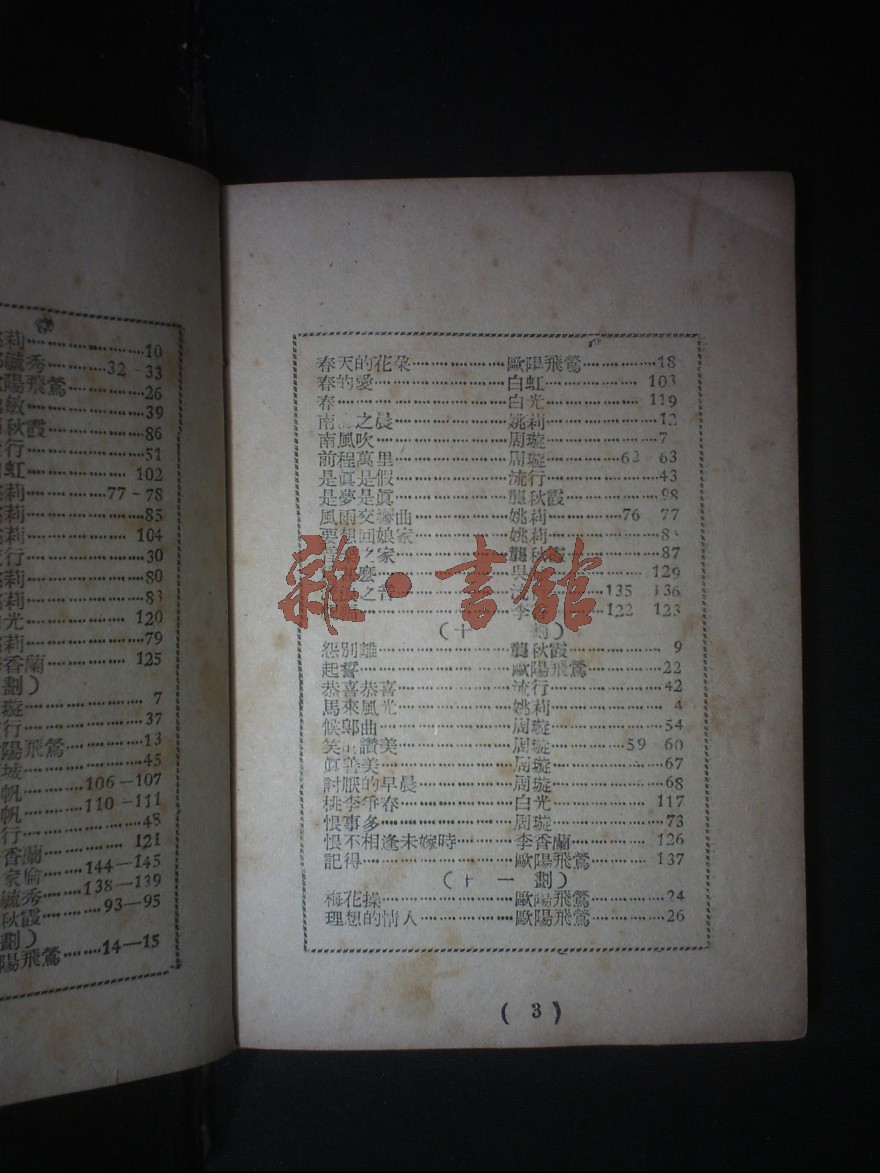 莉 10
毓秀 32-33
陽飛鶯 26
敏 39
秋霞 86
行 51
虹 102
莉 77-78
莉 85
莉 104
行 30
莉 80
莉 83
光 120
莉 79
香蘭 125
劃)
璇 7
行 37
陽飛鶯 13
城 45
帆 106-107
帆 110-111
行 48
香蘭 121
家倫 144-145
毓秀 138-139
秋霞 93-95
劃)
陽飛鶯 14-15
春天的花朶 歐陽飛鶯 18
春的愛 白虹 103
春 白光 119
南 之晨 姚莉 12
南風吹 周璇 7
前程萬里 周璇 62 63
是眞是假 流行 43
是夢是眞 龔秋霞 98
風雨交響曲 姚莉 76 77
要想回娘家 姚莉
之家 龔秋霞 87
麼 吳 129
之音 135 136
李 122 123
(十 劃)
怨別離 龔秋霞 9
起誓 歐陽飛鶯 22
恭喜恭喜 流行 42
馬來風光 姚莉 4
候郞曲 周璇 54
笑 讚美 周璇 59 60
眞善美 周璇 67
討厭的早晨 周璇 68
桃李爭春 白光 117
恨事多 周璇 73
恨不相逢未嫁時 李香蘭 126
記得 歐陽飛鶯 137
(十一劃)
梅花操 歐陽飛鶯 24
理想的情人 歐陽飛鶯 26
(3)
雜·書館